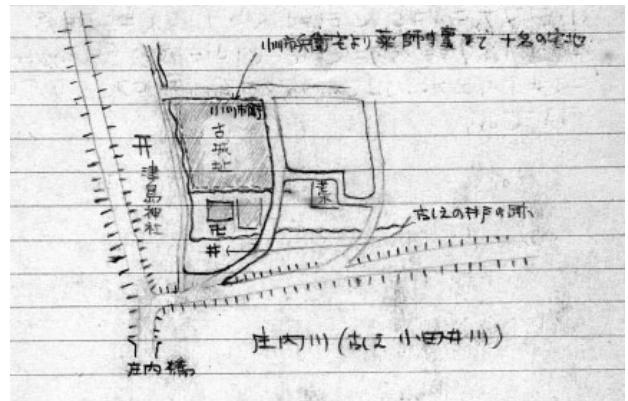 小川市兵衛宅より薬師寺裏まで十名の宅地
小川市兵衛
古城址
津島神社
卍
井
古しえの井戸の跡
庄内川(古しえ 小田井川)
庄内橋